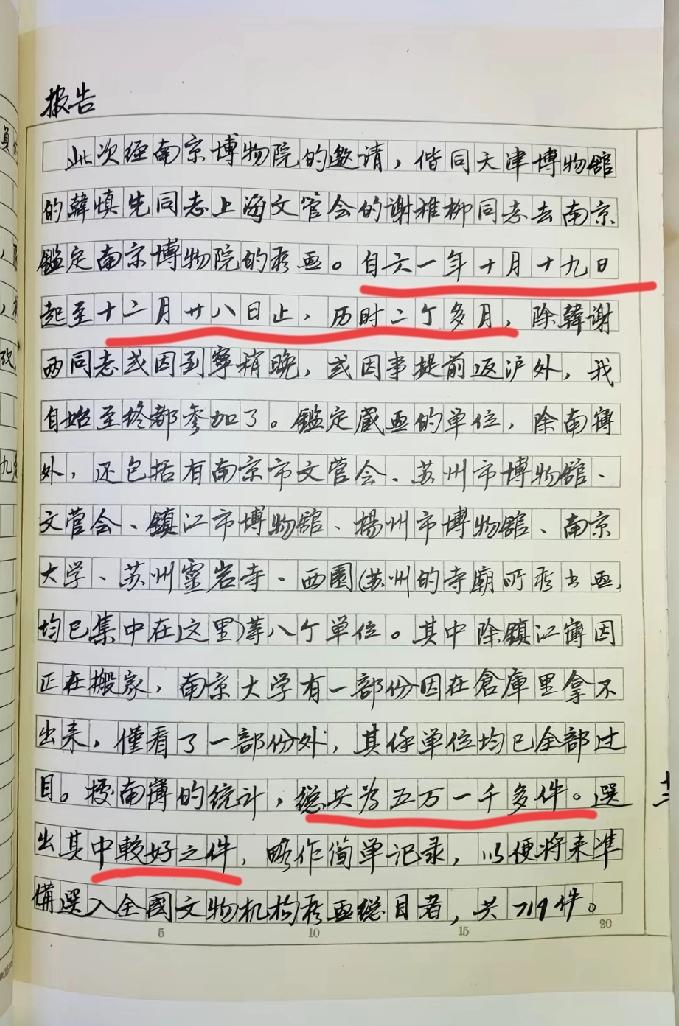 报告
此次经南京博物院的邀请，偕同天津博物馆
的韓慎先同志上海文管会的谢稚柳同志去南京
鑑定南京博物院的藏画。自六一年十月十九日
起至十二月廿八日止，历时二个多月，除韓谢
两同志或因到寧稍晚，或因事提前返沪外，我
自始至终都参加了。鑑定藏画的单位，除南博
外，还包括有南京市文管会、苏州市博物館、
文管会、镇江市博物館、揚州市博物館、南京
大学、苏州靈岩寺、西園(苏州的寺廟所藏书画，
均已集中在这里)等八个单位。其中除镇江博因
正在搬家，南京大学有一部份因在倉庫里拿不
出来，僅看了一部份外，其余单位均已全部过
目。据南博的统计，總共为五万一千多件。選
出其中較好之件，略作简单记录，以便将来準
備選入全國文物机构藏画總目者，共719件。
5 10 15 20